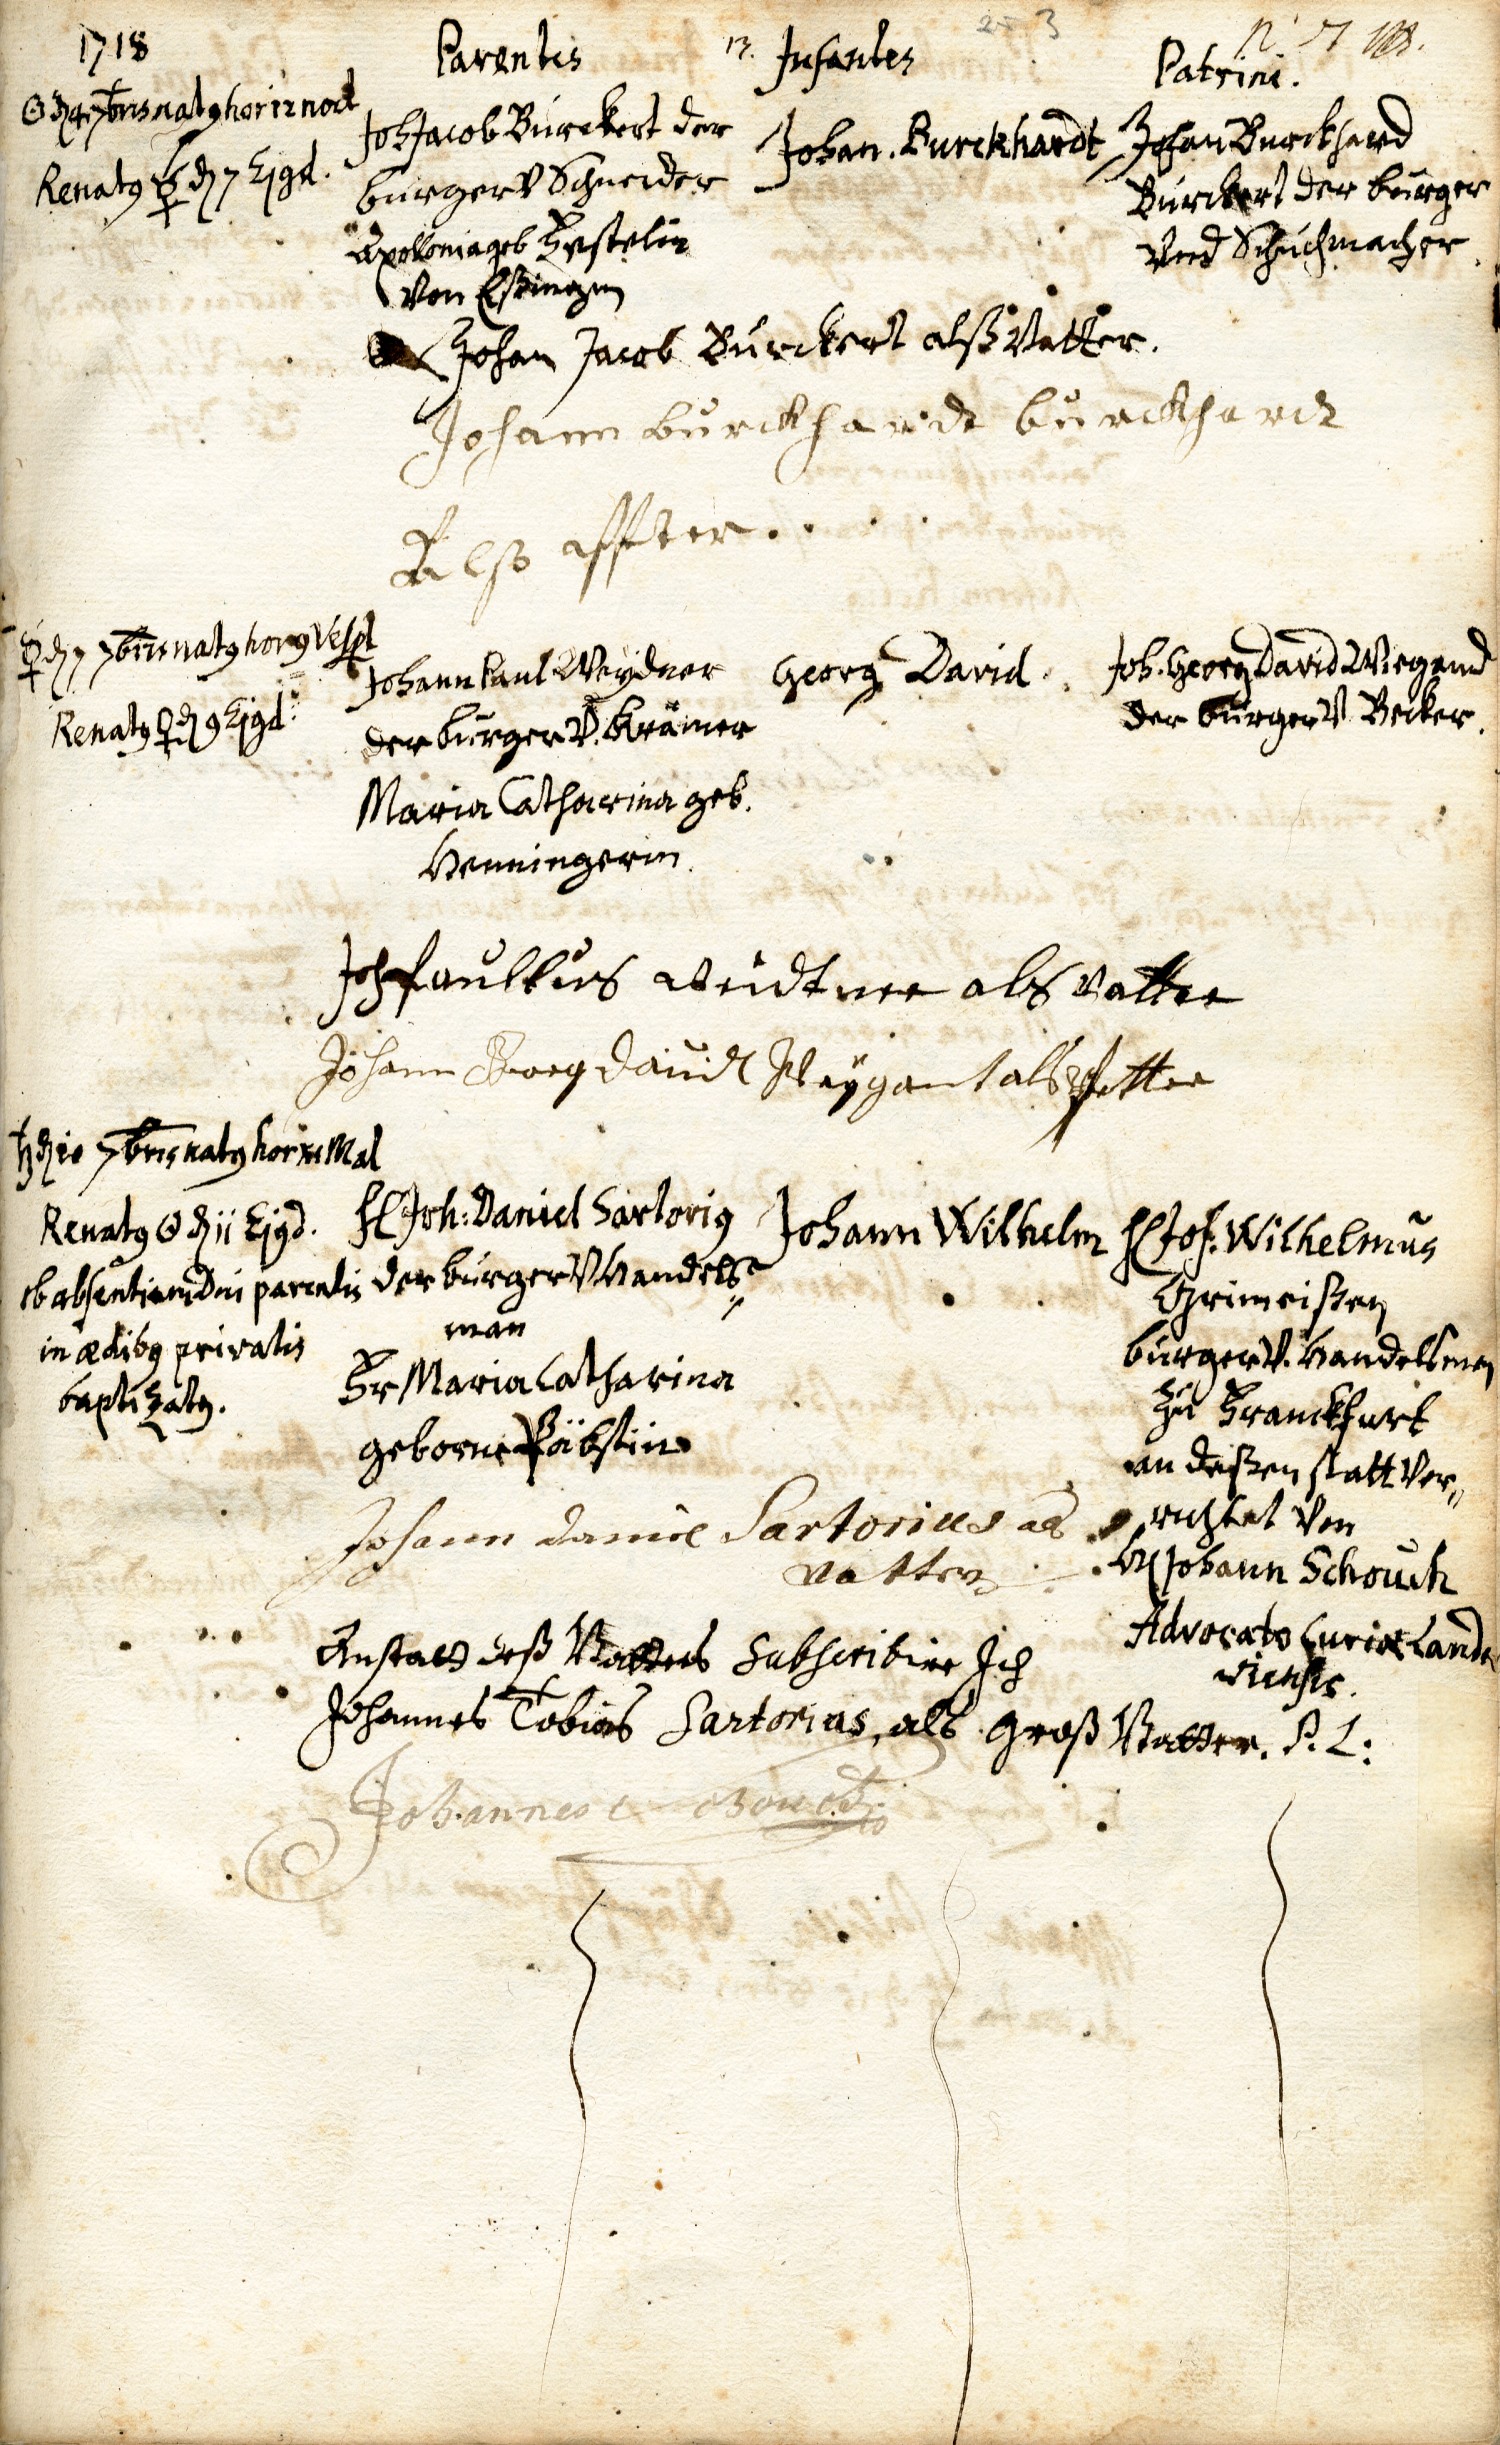 1718
Parentes
13.
Infantes
Patrini.
☉ d 4 7bris nat9 hor 12 noct
Renat9 ☿ d 7 Ejgd.
Joh Jacob Burckert der
burger V Schneider
Apollonia geb
Von Eßlingen
Johan. Burckhardt
Johan Burckhard
Burckert der burger
Vnd Schuchmacher.
Johan Jacob Burckert alß Vatter.
Johann burckhardt burckhardt
Alß
☿ d 7 7bris nat9 hor 9 Vesp
Renat9 ♀ d 9 Ejgd:
Johann Paul Weydner
der burger V. Krämer
Maria Catharina geb.
Henningerin.
Georg David.
Joh. Georg David Wiegand
der burger V. Becker.
Joh paullus weidtner als Vatter
Johann Georg david Weygant als Pfetter
♄ d 10 7bris nat9 hor XI Mat
Renat9 ☉ d 11 Ejgd.
ob absentiam Dni parentis
in ædib9 privatis
baptizat9.
H Joh: Daniel Sartori9
der burger V Handels=
man
Fr Maria Catharina
geborne Päbstin
Johann Wilhelm
H Joh. Wilhelmus
Grimeißen
burger V. Handelsmen
zu Franckfurt
an deßen statt Ver=
richtet Von
H Johann Schouch
Advocato Curiæ Landa
viensis.
Johann daniel Sartorius als
Vatter
Anstatt deß Vatters Subscribire Ich
Johannes Tobias Sartorius, als Groß Vatter. P. L:
Johannes